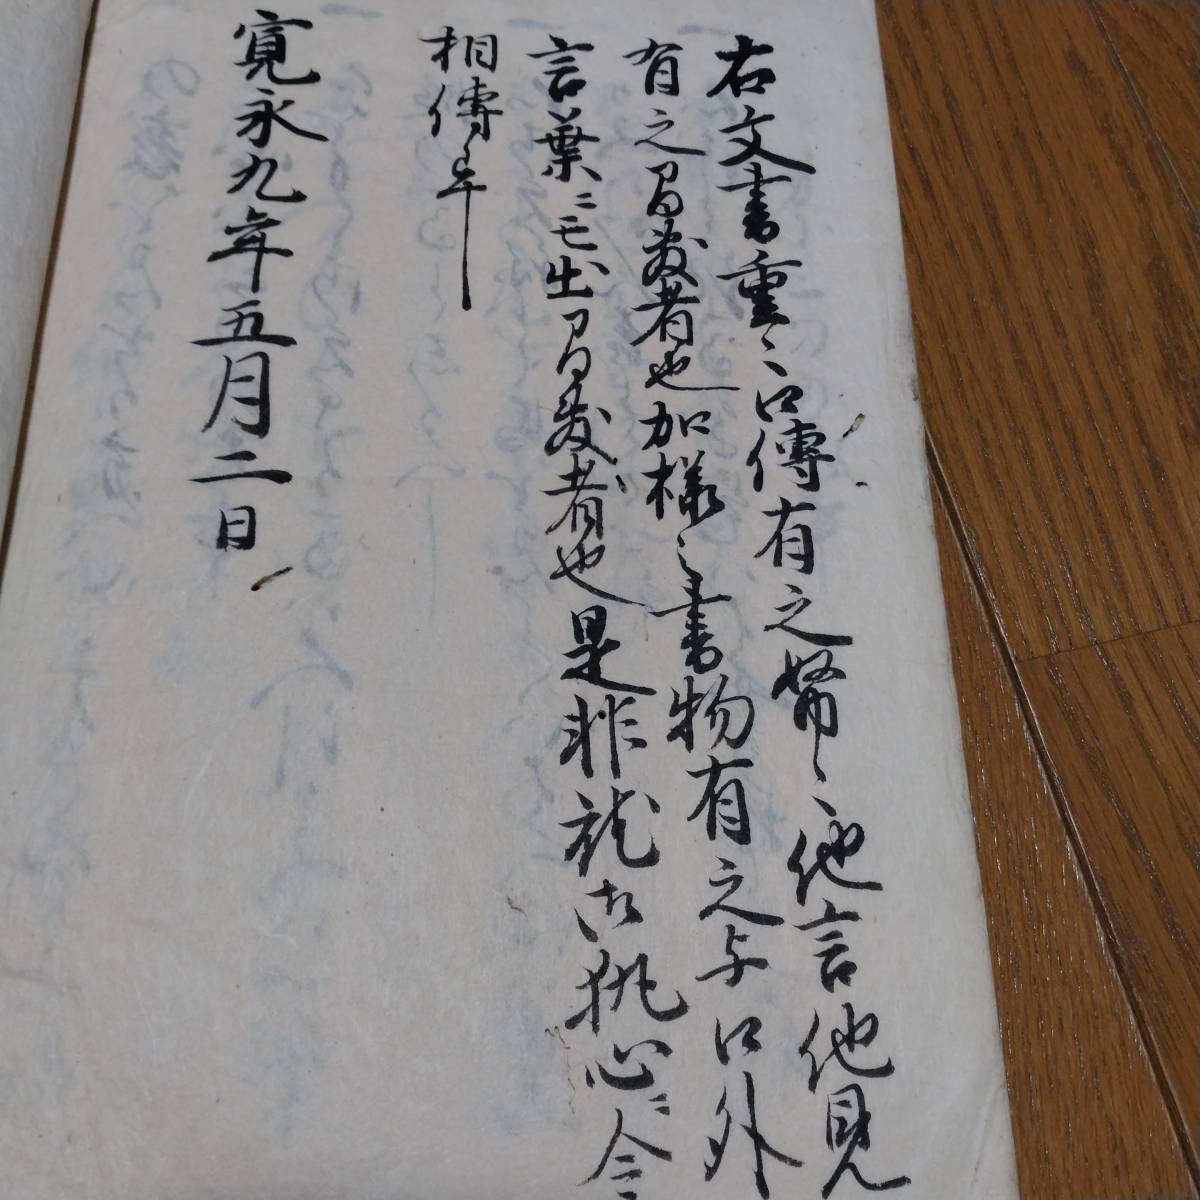 右文書重々口傳有之努々他言他見
有之間敷者也加様之書物有之与口外
言葉ニモ出間敷者也是非就御執心ニ令
相傳畢
寛永九年五月二日